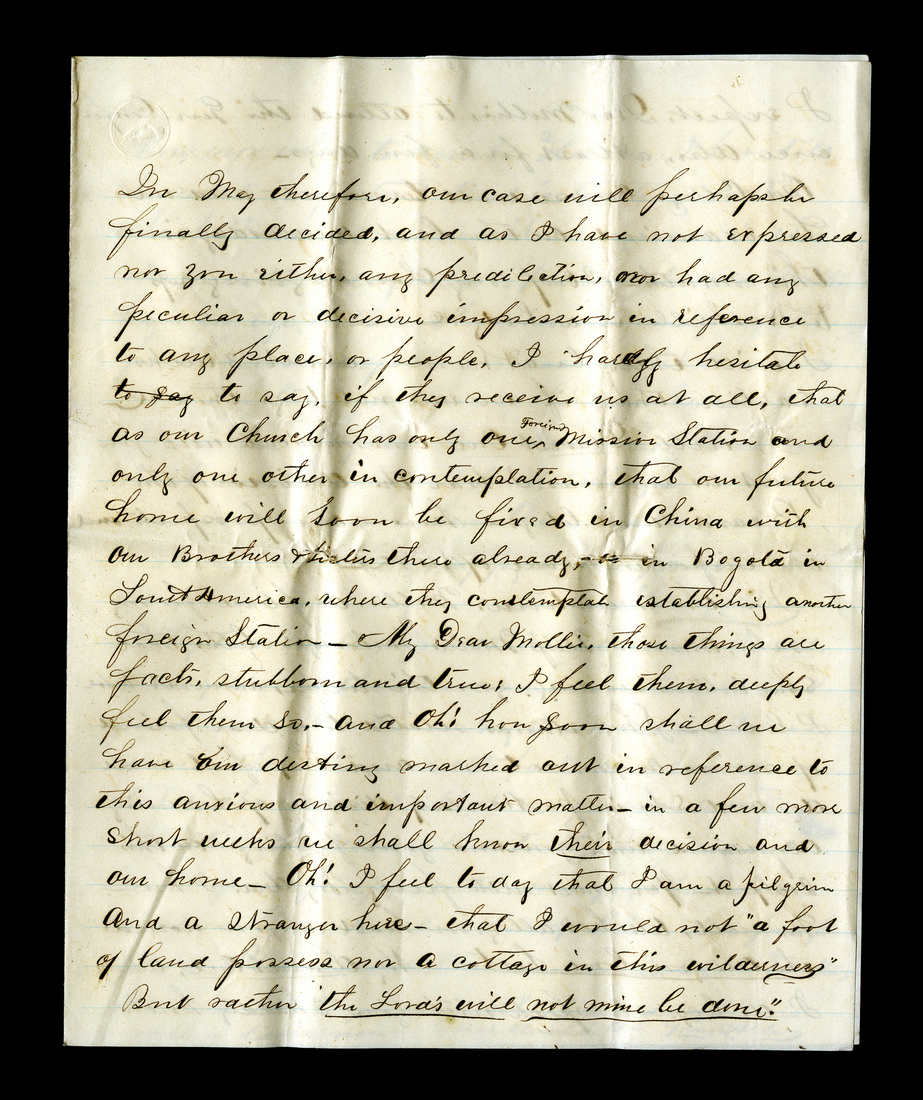 In May therefore, our case will perhaps be
finally decided, and as I have not expressed
nor you either, any predilection, nor had any
peculiar or decisive impression in reference
to any place, or people, I hardly hesitate
to say to say, if they receive us at all, that
as our Church has only one Foreign Mission Station and
only one other in contemplation, that our future
home will soon be fixed in China with
our Brothers & Sisters there already, - or in Bogotá in
South America, where they contemplate establishing another
foreign Station - My Dear Mollie, those things are
facts, stubborn and true; I feel them, deeply
feel them so, - and Oh! how soon shall we
have our destiny marked out in reference to
this anxious and important matter - in a few more
short weeks we shall know their decision and
our home - Oh! I feel to day that I am a pilgrim
and a stranger here - that I would not "a foot
of land possess nor a cottage in this wilderness"
But rather "the Lord's will not mine be done."